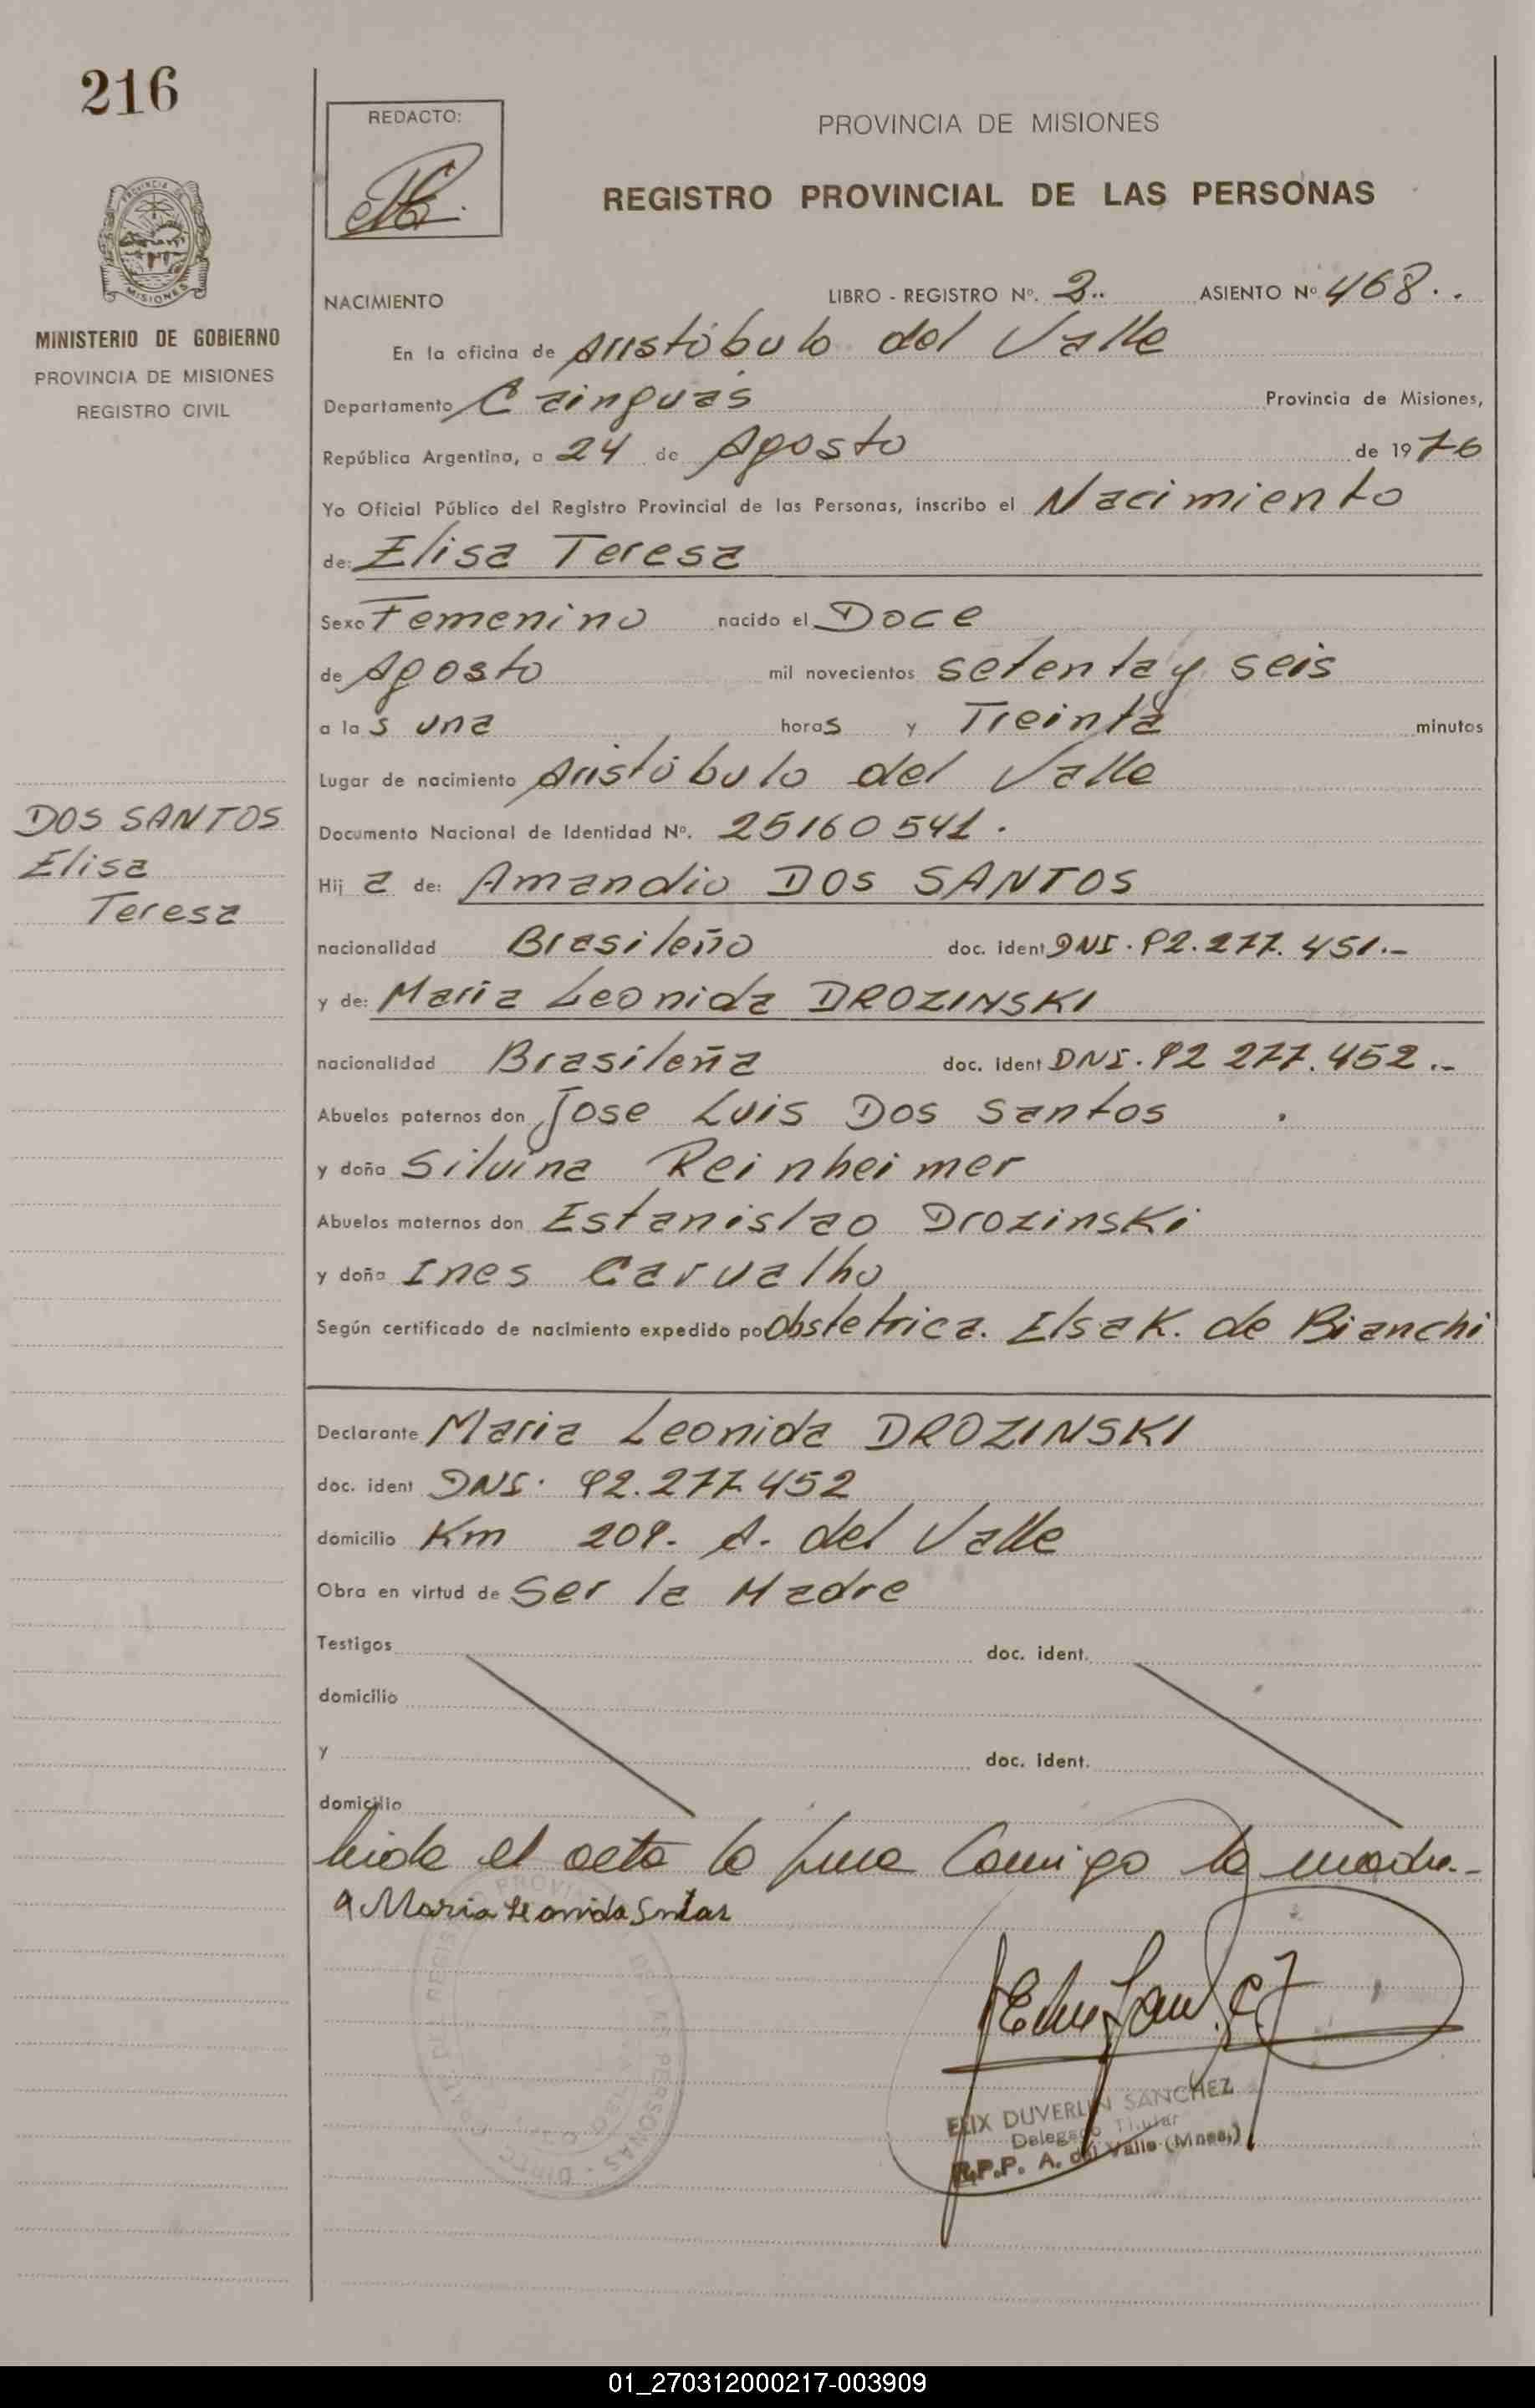 216
REDACTO:
PROVINCIA DE MISIONES
REGISTRO PROVINCIAL DE LAS PERSONAS
MISIONES
MINISTERIO DE GOBIERNO
PROVINCIA DE MISIONES
REGISTRO CIVIL
NACIMIENTO LIBRO - REGISTRO Nº. 3.. ASIENTO Nº 468..
En la oficina de Aristóbulo del Valle
Departamento Cainguás Provincia de Misiones,
República Argentina, a 24 de Agosto de 1976
Yo Oficial Público del Registro Provincial de las Personas, inscribo el Nacimiento
de: Elisa Teresa
Sexo Femenino nacido el Doce
de Agosto mil novecientos setenta y seis
a las una horas y Treinta minutos
Lugar de nacimiento Aristóbulo del Valle
DOS SANTOS
Elisa
Teresa
Documento Nacional de Identidad Nº. 25160541.
Hija de: Amandio DOS SANTOS
nacionalidad Brasileño doc. ident DNI. 92.277.451.-
y de: Maria Leonida DROZINSKI
nacionalidad Brasileña doc. ident DNI. 92 277.452.-
Abuelos paternos don Jose Luis Dos Santos
y doña Silvina Reinheimer
Abuelos maternos don Estanislao Drozinski
y doña Ines Carvalho
Según certificado de nacimiento expedido po Obstetrica. Elsa K. de Bianchi
Declarante Maria Leonida DROZINSKI
doc. ident DNI. 92.277.452
domicilio Km 209. A. del Valle
Obra en virtud de Ser la Madre
Testigos doc. ident.
domicilio
y doc. ident.
domicilio
leida el acta la firma Conmigo la madre.-
Maria Leonida Santos
ELIX DUVERLIN SANCHEZ
Delegado Titular
R.P.P. A. del Valle (Mnes.)
01_270312000217-003909